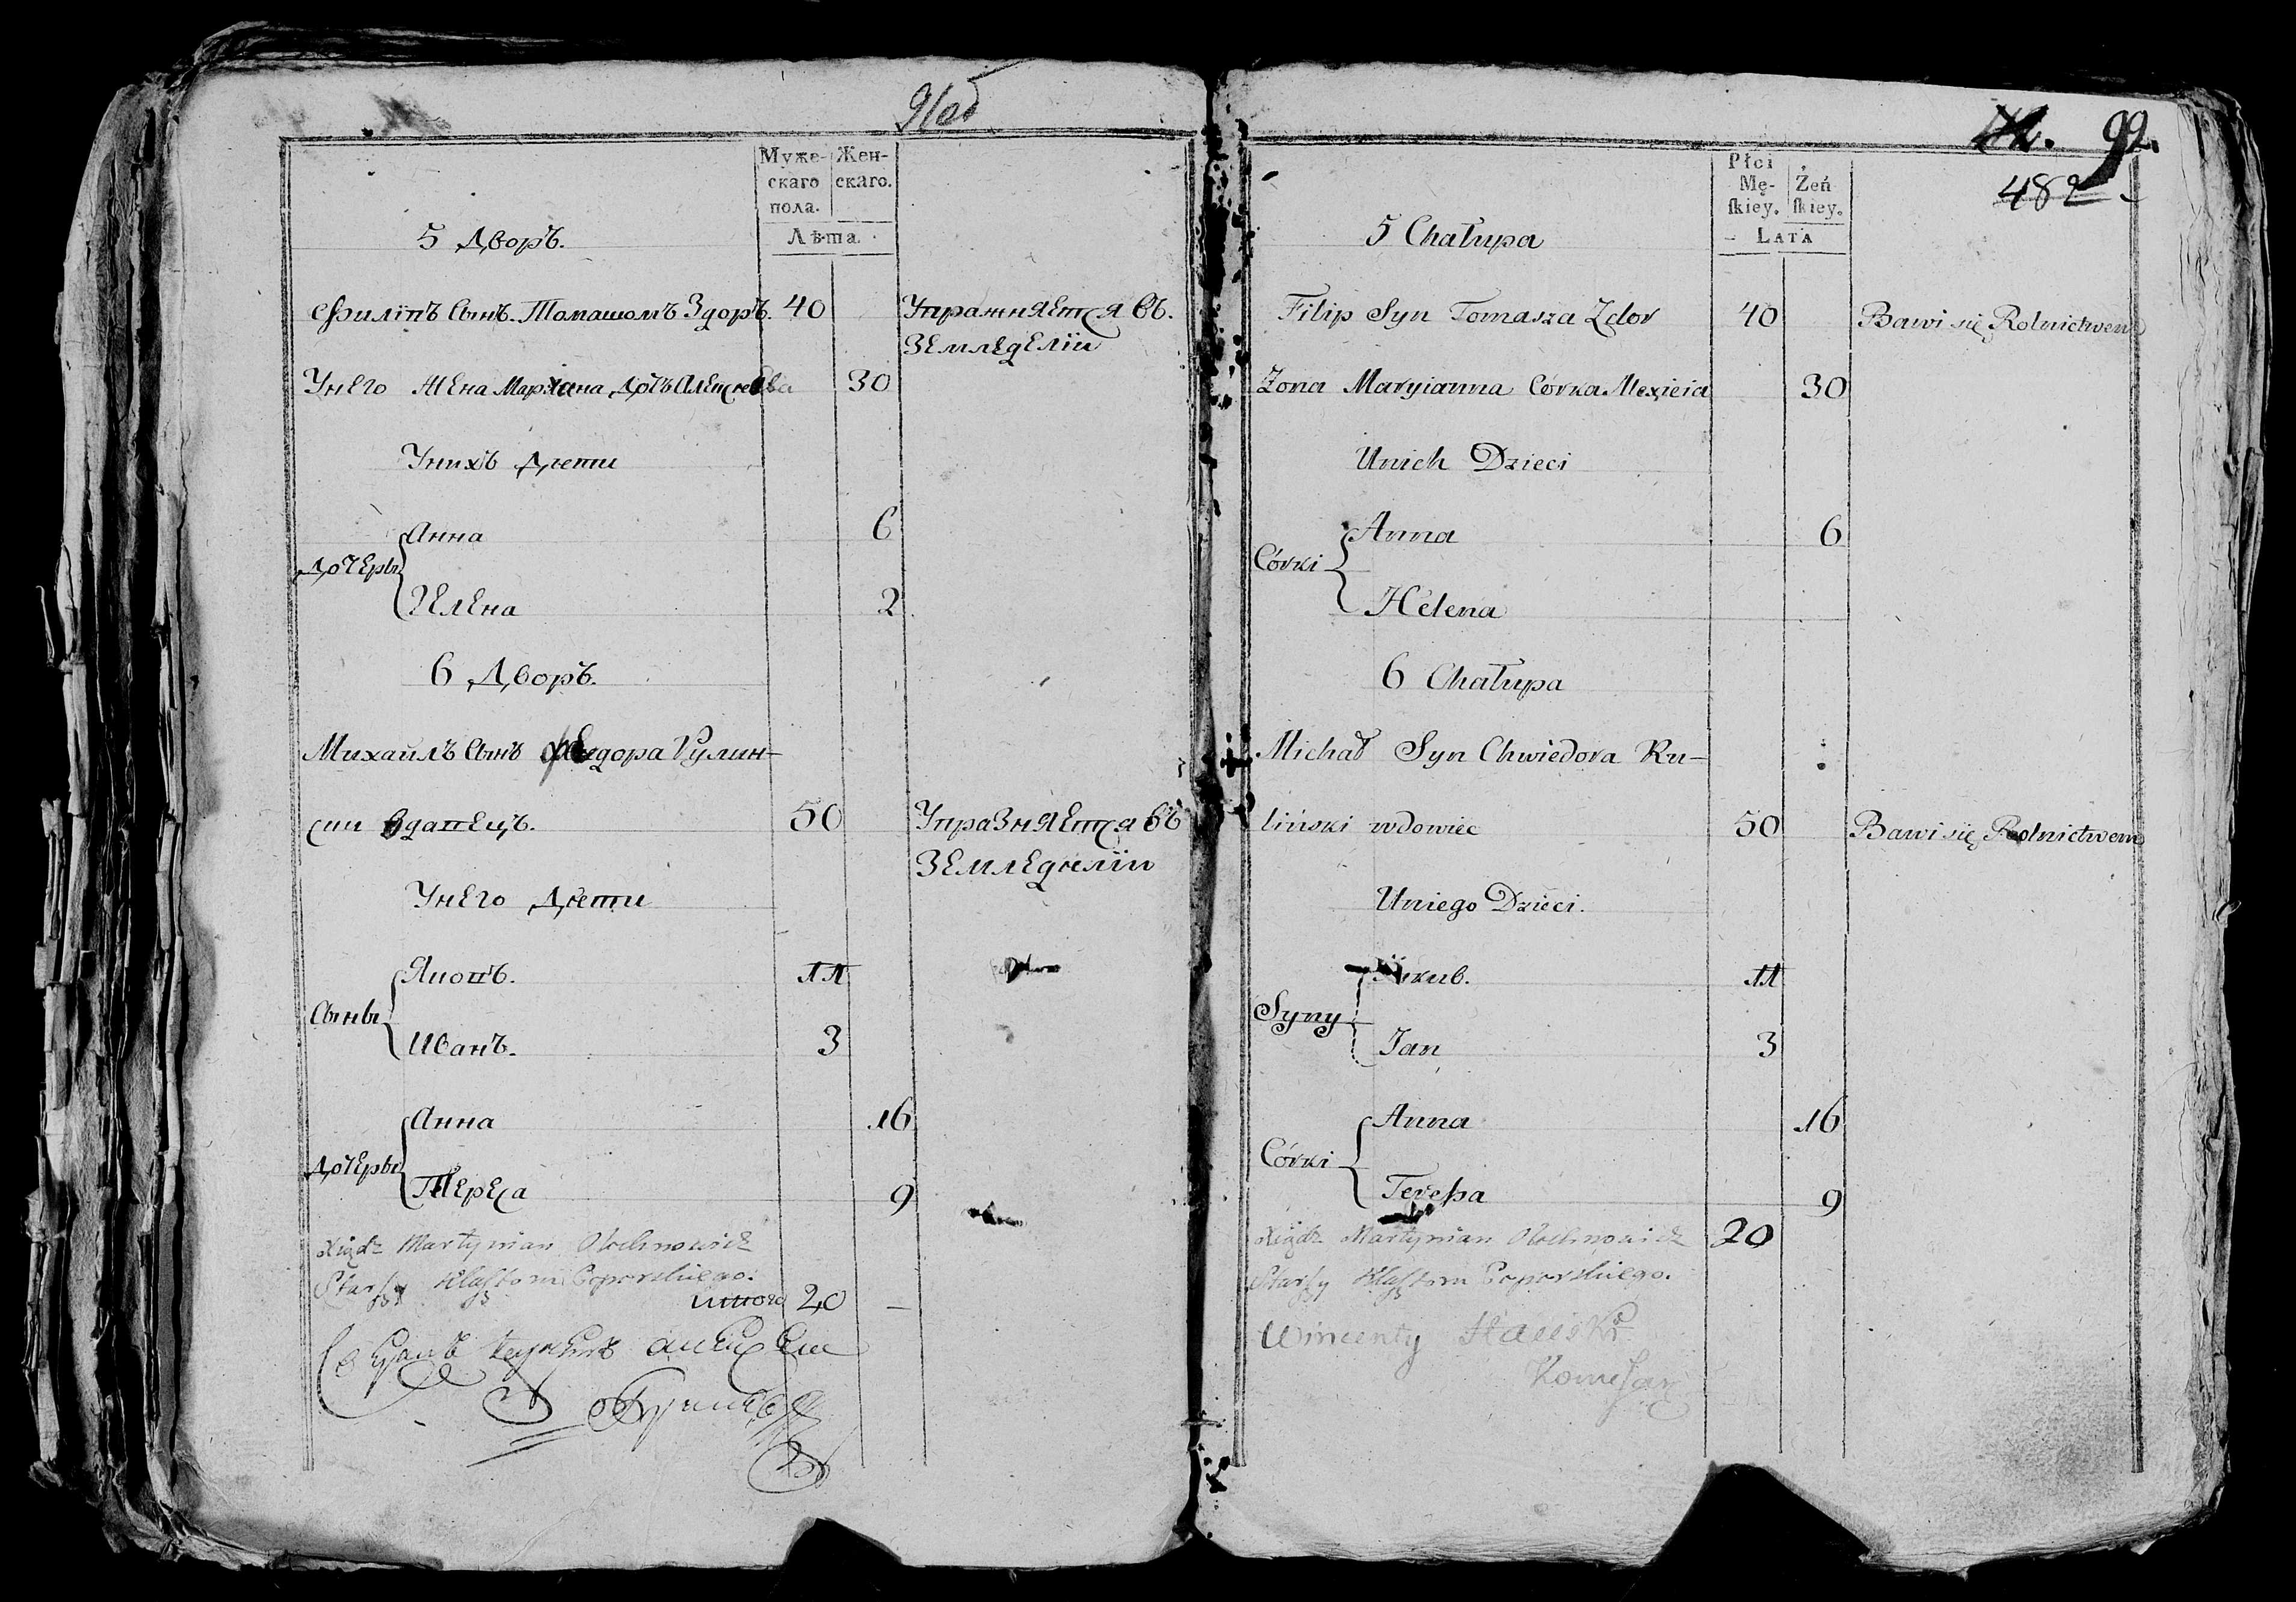 91об
Муже-
скаго
пола.
Жен-
скаго.
Лѣта.
5 Дворъ.
Филипъ Сынъ Томашомъ Здоръ. 40 Упражняется въ
Земледеліи
Унего Жена Марiана Дочь 30
Унихъ Дѣти
Дочеры
Анна 6
Гелена 2
6 Дворъ.
Михайлъ Сынъ Федора Рулин-
ски вдавецъ. 50 Упразняется въ
Земледѣліи
Унего Дѣти
Сыны
Якопъ. 11
Иванъ. 3
Анна 16
Дочеры
Тереса 9
Xiądz Martynian
Starszy Klasztoru Poporskiego.
Итого 20 —
92.
482
Płci
Mę-
ſkiey.
Żeń
ſkiey.
LATA
5 Chałupa
Filip Syn Tomasza Zdor 40 Bawi się Rolnictwem
Zona Maryianna Córka Alexieia 30
Unich Dzieci
Córki
Anna 6
Helena
6 Chałupa
Michał Syn Chwiedora Ru-
liński wdowiec 50 Bawi się Rolnictwem
Uniego Dzieci.
Jakub. 11
Syny
Jan 3
Anna 16
Córki
Tereſsa 9
Xiądz Martynian 20
Starszy Klasztoru Poporskiego.
Wincenty
Komiſarz